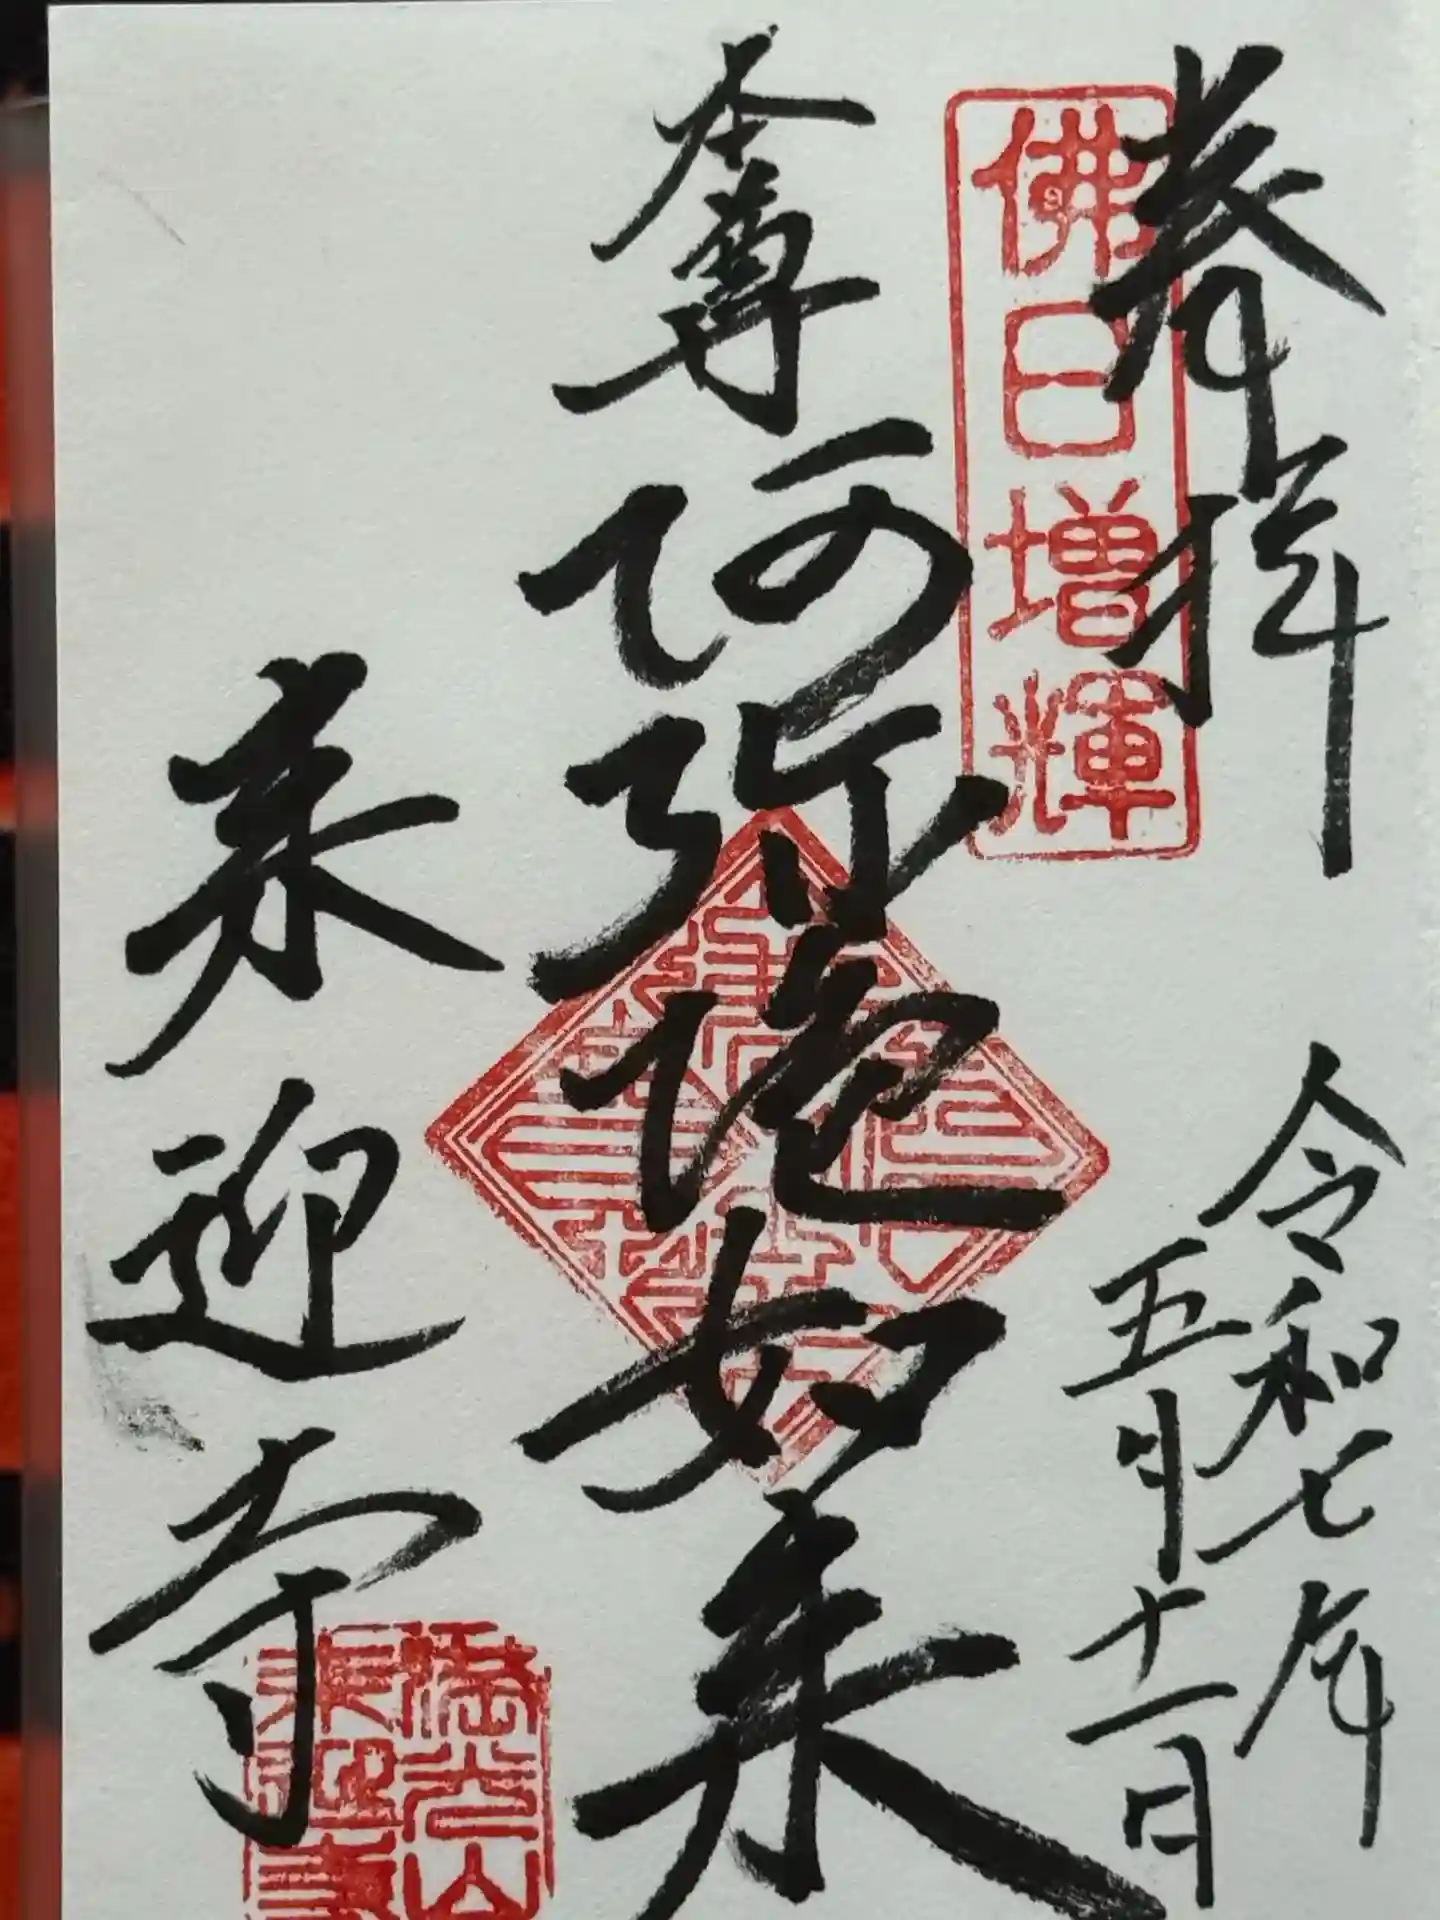 奉拝
佛日増輝
令和七年
五月十一日
本尊
阿弥陀如来
来迎寺